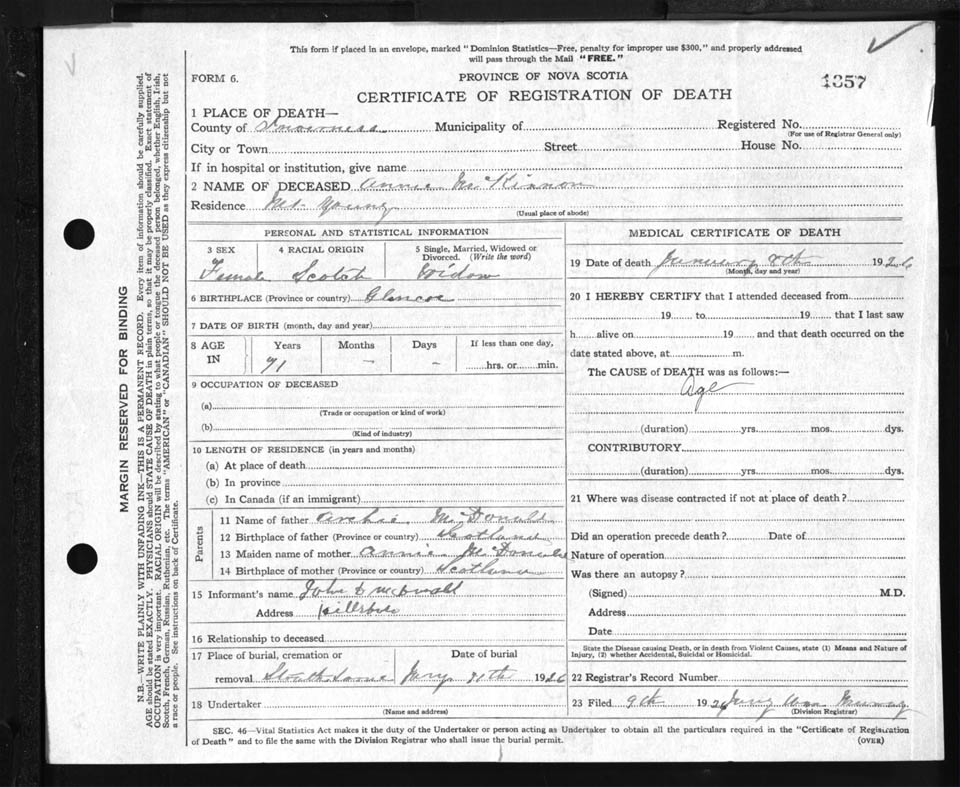 This form if placed in an envelope, marked "Dominion Statistics—Free, penalty for improper use $300," and properly addressed
will pass through the Mail "FREE."
FORM 6.
PROVINCE OF NOVA SCOTIA
1357
CERTIFICATE OF REGISTRATION OF DEATH
1 PLACE OF DEATH—
County of Inverness Municipality of Registered No.
(For use of Registrar General only)
City or Town Street House No.
If in hospital or institution, give name
2 NAME OF DECEASED Annie McKinnon
Residence Mt. Young
(Usual place of abode)
PERSONAL AND STATISTICAL INFORMATION
3 SEX 4 RACIAL ORIGIN 5 Single, Married, Widowed or
Divorced. (Write the word)
Female Scotch Widow
6 BIRTHPLACE (Province or country) Glencoe
7 DATE OF BIRTH (month, day and year)
8 AGE Years Months Days If less than one day,
IN 71 – – hrs. or min.
9 OCCUPATION OF DECEASED
(a)
(Trade or occupation or kind of work)
(b)
(Kind of industry)
10 LENGTH OF RESIDENCE (in years and months)
(a) At place of death
(b) In province
(c) In Canada (if an immigrant)
Parents
11 Name of father Archie McDonald
12 Birthplace of father (Province or country) Scotland
13 Maiden name of mother Annie McDonald
14 Birthplace of mother (Province or country) Scotland
15 Informant's name John D
Address Hillsboro
16 Relationship to deceased
17 Place of burial, cremation or Date of burial
removal Strathlorne 1926
18 Undertaker
(Name and address)
MEDICAL CERTIFICATE OF DEATH
19 Date of death January 8th 1926
(Month, day and year)
20 I HEREBY CERTIFY that I attended deceased from
19 to 19 that I last saw
h alive on 19 and that death occurred on the
date stated above, at m.
The CAUSE of DEATH was as follows:—
Age
(duration) yrs. mos. dys.
CONTRIBUTORY
(duration) yrs. mos. dys.
21 Where was disease contracted if not at place of death?
Did an operation precede death? Date of
Nature of operation
Was there an autopsy?
(Signed) M.D.
Address
Date
State the Disease causing Death, or in death from Violent Causes, state (1) Means and Nature of
Injury, (2) whether Accidental, Suicidal or Homicidal.
22 Registrar's Record Number
23 Filed 9th 1926
(Division Registrar)
SEC. 46—Vital Statistics Act makes it the duty of the Undertaker or person acting as Undertaker to obtain all the particulars required in the "Certificate of Registration
of Death" and to file the same with the Division Registrar who shall issue the burial permit.
(OVER)
MARGIN RESERVED FOR BINDING
N.B.—WRITE PLAINLY WITH UNFADING INK—THIS IS A PERMANENT RECORD. Every item of information should be carefully supplied.
AGE should be stated EXACTLY. PHYSICIANS should STATE CAUSE OF DEATH in plain terms, so that it may be properly classified. Exact statement of
OCCUPATION is very important. RACIAL ORIGIN will be described by stating to what people or tongue the deceased person belonged, whether English, Irish,
Scotch, French, German, Russian, Ruthenian, etc. The terms "AMERICAN" or "CANADIAN" SHOULD NOT BE USED as they express citizenship but not
a race or people. See instructions on back of Certificate.